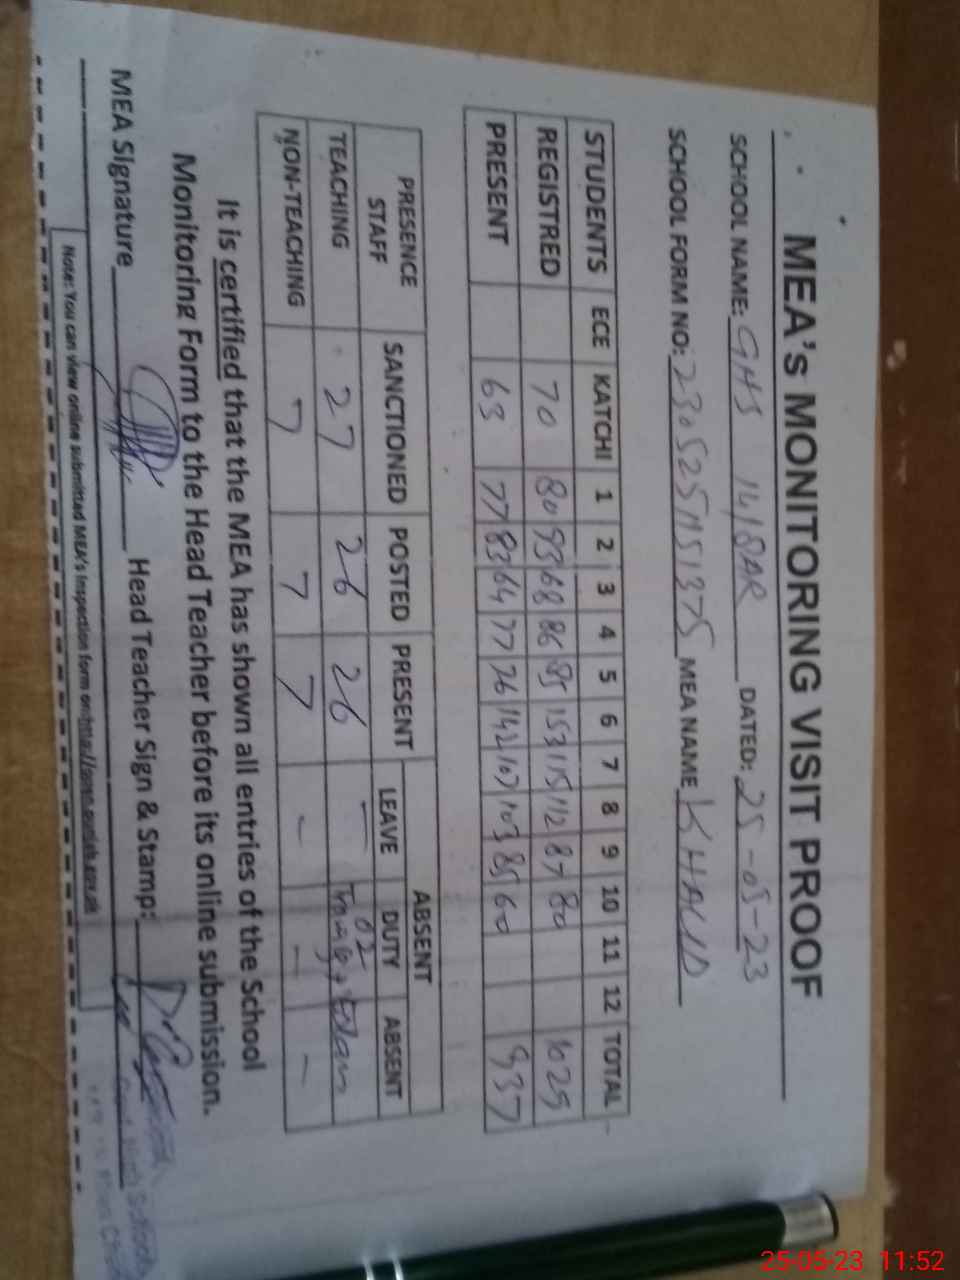 MEA's MONITORING VISIT PROOF
SCHOOL NAME: GHS 141/8AR DATED: 25-05-23
SCHOOL FORM NO: 230525M51375 MEA NAME KHALID
STUDENTS ECE KATCHI 1 2 3 4 5 6 7 8 9 10 11 12 TOTAL
REGISTRED 70 80 93 68 86 85 153 115 112 87 80 1029
PRESENT 63 77 83 64 77 76 142 107 103 85 60 937
PRESENCE STAFF SANCTIONED POSTED PRESENT ABSENT
LEAVE DUTY ABSENT
TEACHING 27 26 26 - 02
NON-TEACHING 7 7 7 - - -
It is certified that the MEA has shown all entries of the School
Monitoring Form to the Head Teacher before its online submission.
MEA Signature Head Teacher Sign & Stamp:
Note: You can view online submitted MEA's Inspection form on
25-05-23 11:52